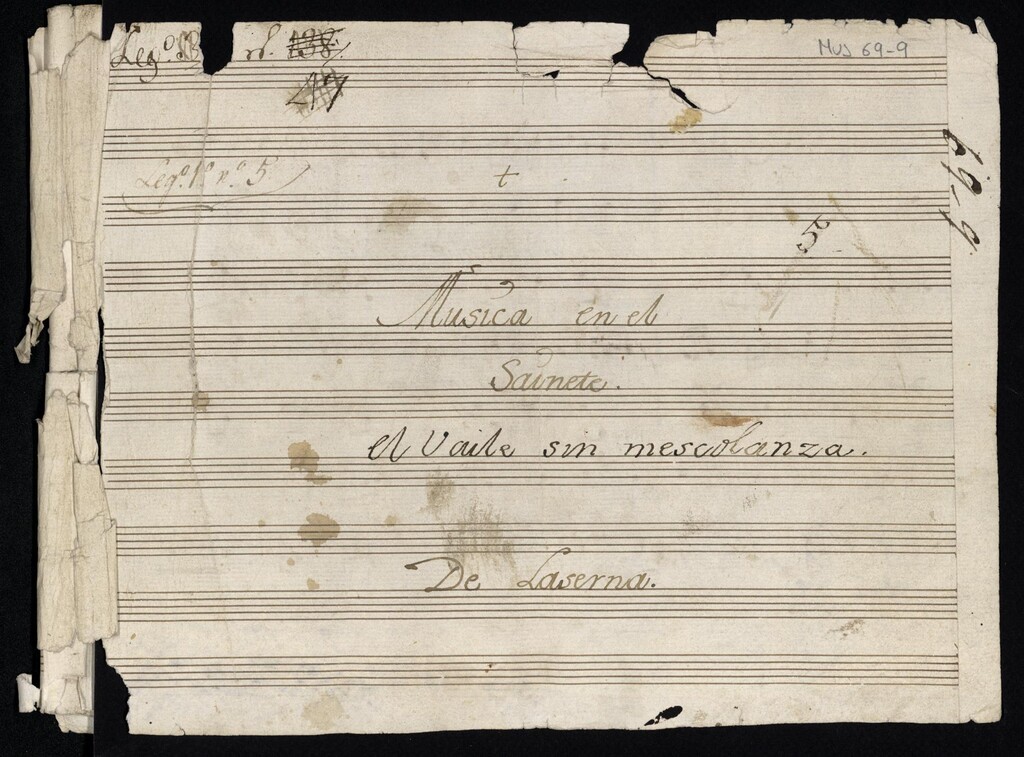 Leg.º 18 n.
Mus 69-9
69-9
Leg.º 1.º n.º 5
+
Musica en el
Sainete.
el Vaile sin mescolanza.
De Laserna.